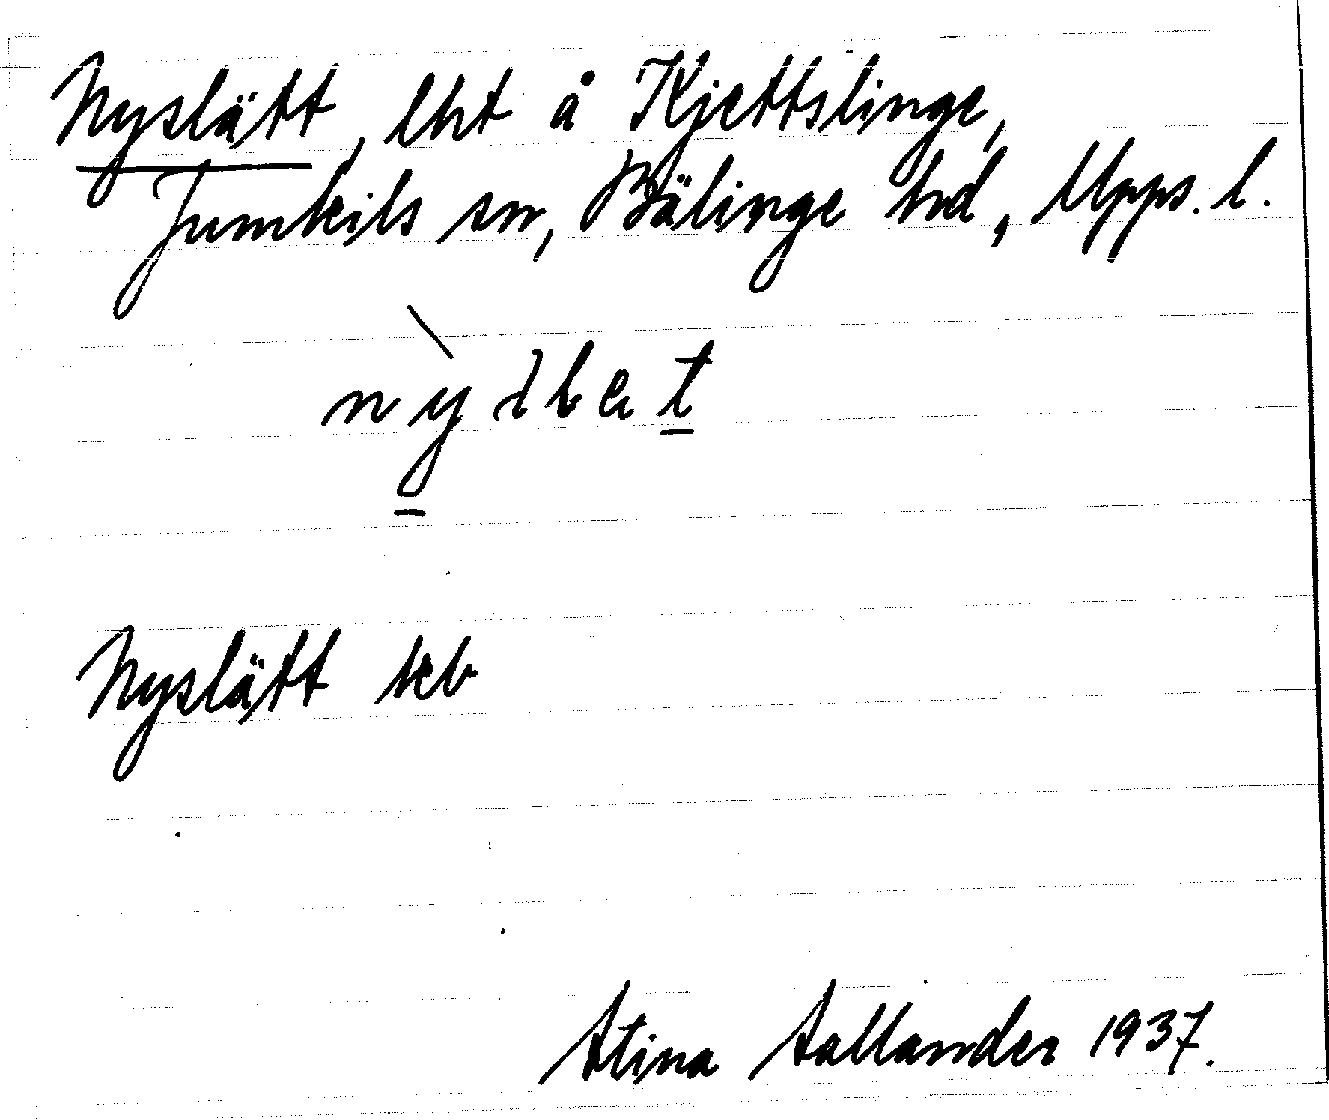 Nyslätt, lht å Kjettslinge,
Jumkils sn, Bälinge hd, Upps. l.
Nyslätt kb
Stina Sallander 1937.